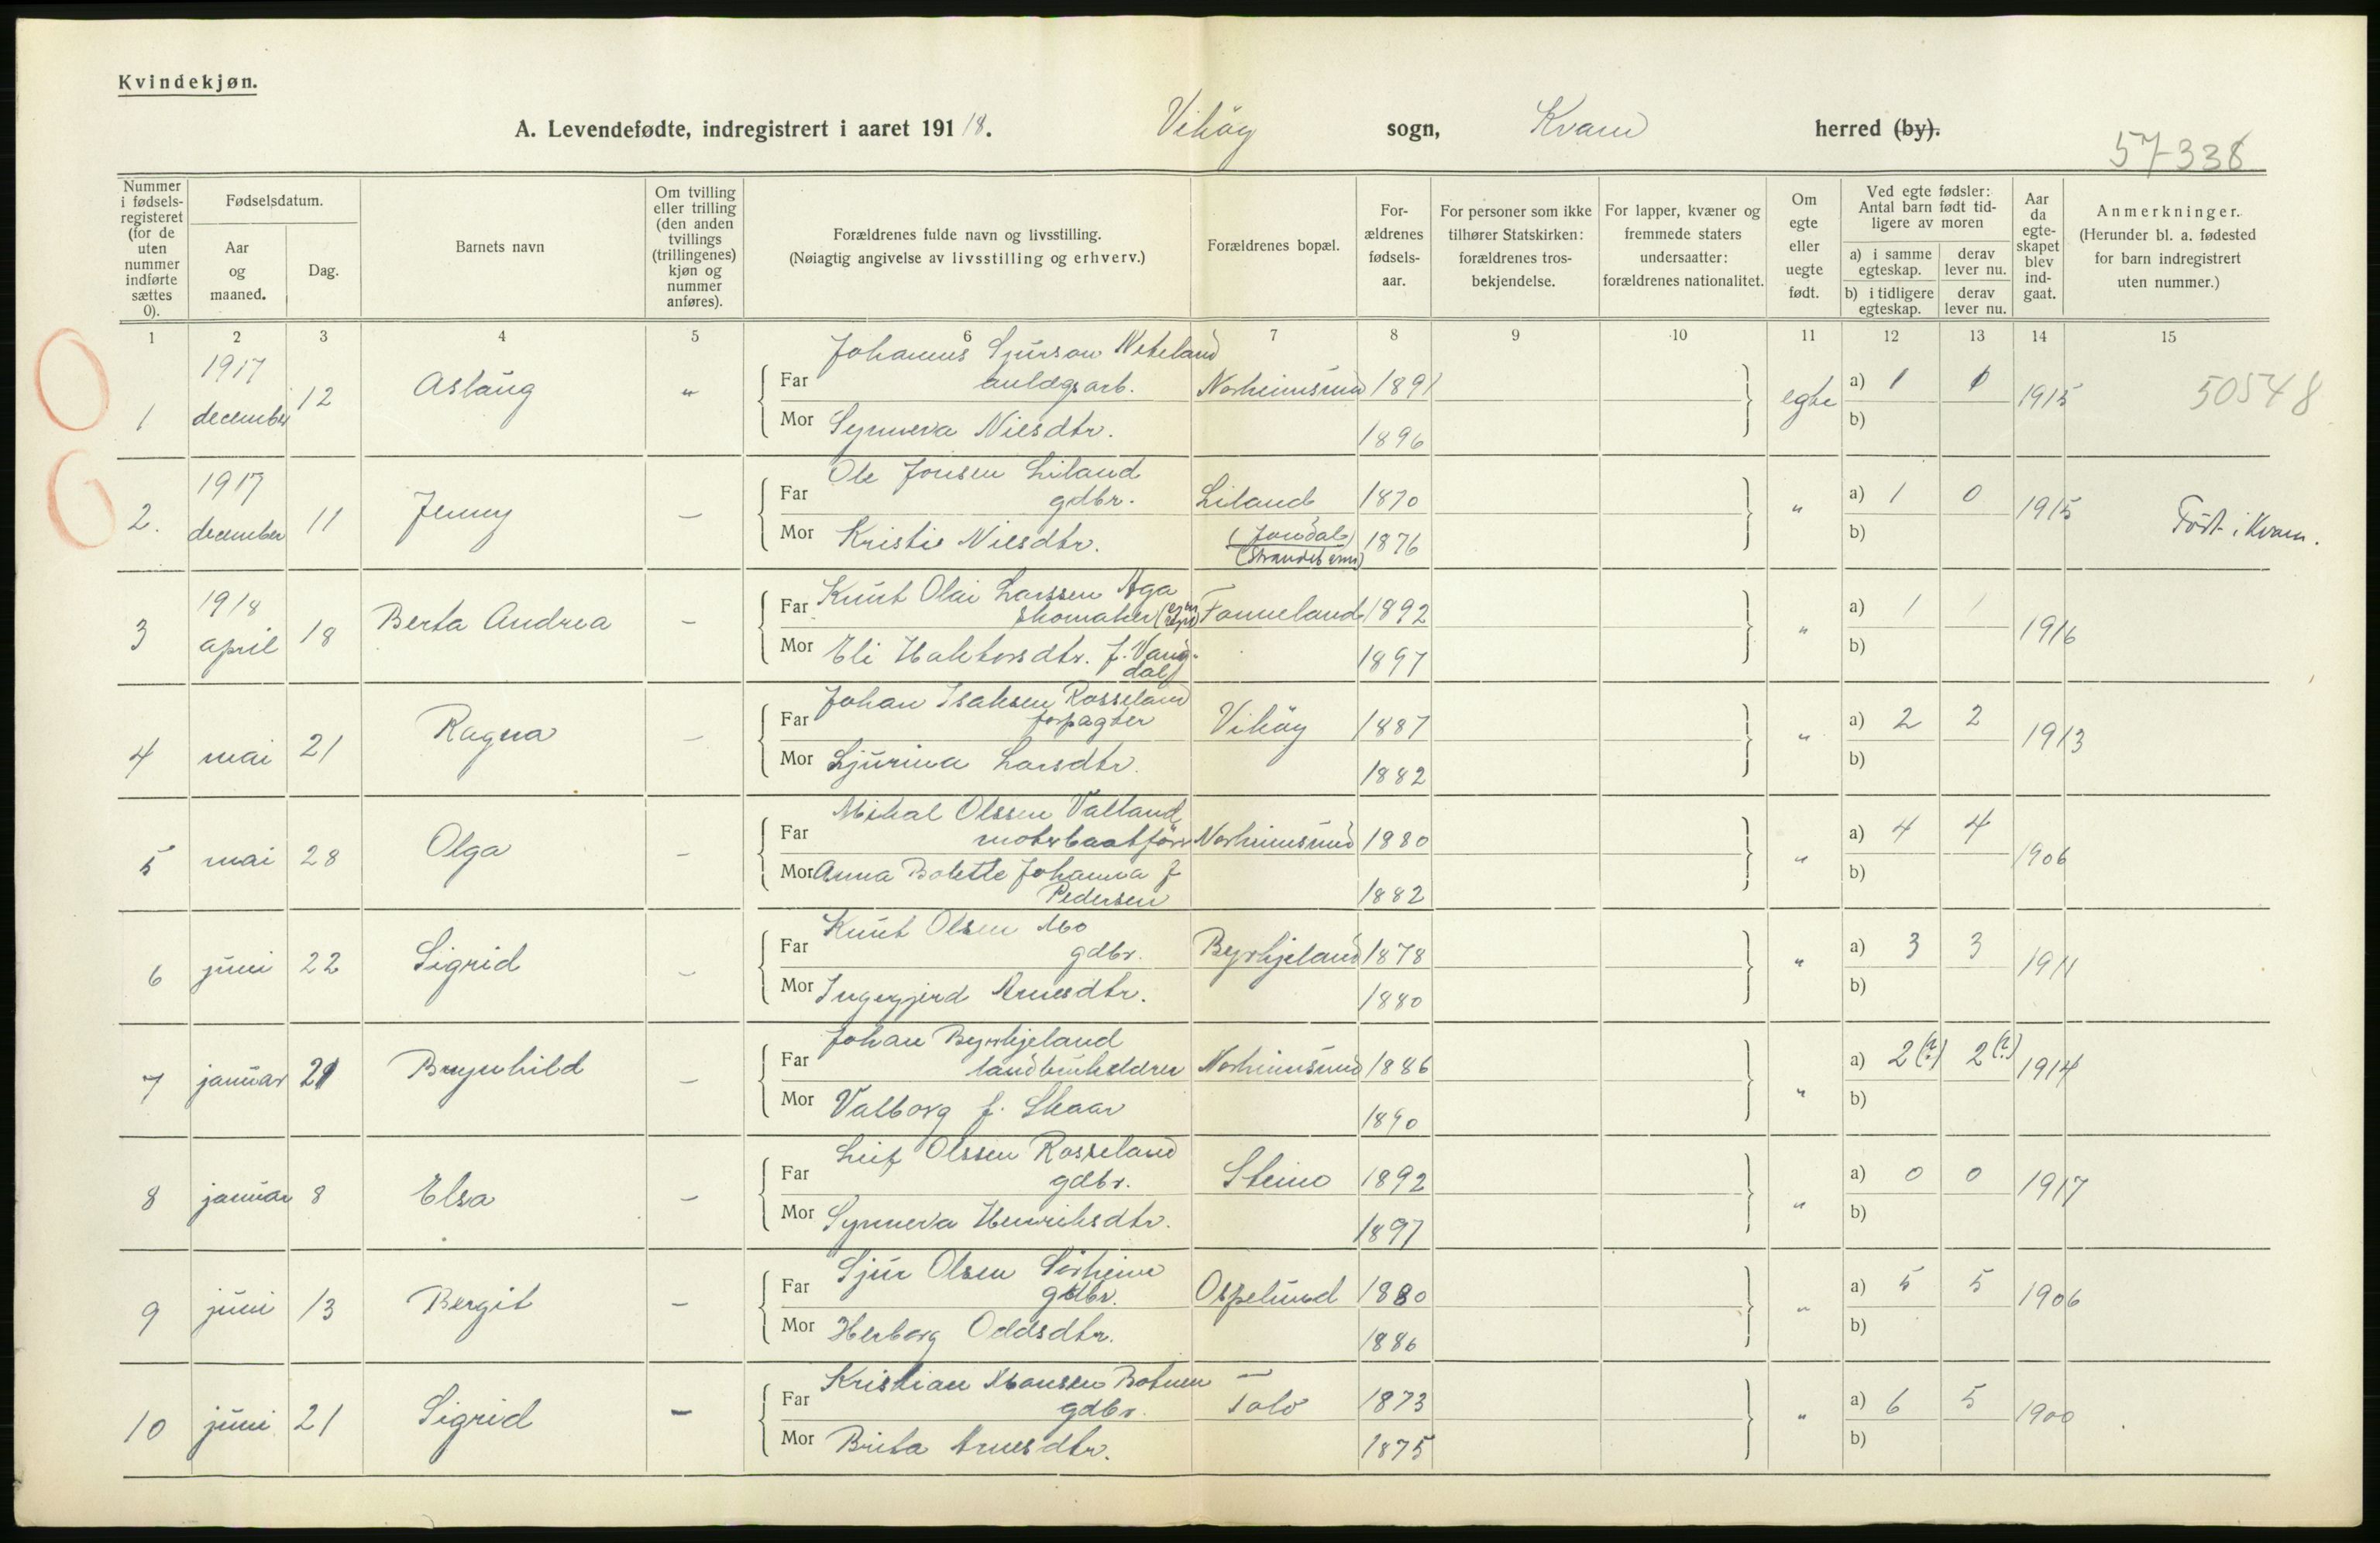 Kvindekjøn.
A. Levendefødte, indregistrert i aaret 1918. Vikøy sogn, Kvam herred (by).
57-338
Nummer i fødsels-registeret (for de uten nummer indførte sættes 0).
Fødselsdatum.
Aar og maaned.
Dag.
Barnets navn
Om tvilling eller trilling (den anden tvillings (trillingenes) kjøn og nummer anføres).
Forældrenes fulde navn og livsstilling.
(Nøiagtig angivelse av livsstilling og erhverv.)
Forældrenes bopæl.
For-ældrenes fødsels-aar.
For personer som ikke tilhører Statskirken: forældrenes tros-bekjendelse.
For lapper, kvæner og fremmede staters undersaatter: forældrenes nationalitet.
Om egte eller uegte født.
Ved egte fødsler: Antal barn født tid-ligere av moren
a) i samme egteskap. derav lever nu.
b) i tidligere egteskap. derav lever nu.
Aar da egte-skapet blev ind-gaat.
Anmerkninger.
(Herunder bl. a. fødested for barn indregistrert uten nummer.)
1 2 3 4 5 6 7 8 9 10 11 12 13 14 15
Johannes Sjurson Neteland
1917
Far anlægsarb. Norheimsund 1891
1 december 12 Aslaug " egte a) 1 1 1915 50548
Mor Synneva Nilsdtr. 1896 b)
Ole Jonsen Liland
1917
Far gdbr. Liland 1870
2. december 11 Jenny - " a) 1 0 1915 Födt i Kvam.
Mor Kristie Nilsdtr. (Jondal) (Strandebarm) 1876 b)
Knut Olai Larssen Aga
1918
Far skomaker Fonneland 1892
3 april 18 Berta Andrea - " a) 1 1 1916
Mor Eli Haktorsdtr. f. Vang-dal 1897 b)
Johan Isaksen Rosseland
Far forpagter Vikøy 1887
4 mai 21 Ragna - " a) 2 2 1913
Mor Sjurina Larsdtr. 1882 b)
Mikal Olssen Valland
Far motorbaatförer Norheimsund 1880
5 mai 28 Olga - " a) 4 4 1906
Mor Anna Bolette Johanna f Pedersen 1882 b)
Knut Olsen Mo
Far gdbr. Byrkjeland 1878
6 juni 22 Sigrid - " a) 3 3 1911
Mor Ingegjerd Arnesdtr. 1880 b)
Johan Byrkjeland
Far landbruksldrer Norheimsund 1886
7 januar 21 Brynhild - " a) 2(?) 2(?) 1914
Mor Valborg f. Skaar 1890 b)
Leif Olssen Rosseland
Far gdbr. Steino 1892
8 januar 8 Elsa - " a) 0 0 1917
Mor Synneva Henriksdtr. 1897 b)
Sjur Olsen Sörheim
Far gdbr. Ospelund 1880
9 juni 13 Bergit - " a) 5 5 1906
Mor Herborg Oddsdtr. 1886 b)
Kristian Monsen Botnen
Far gdbr. Tolo 1873
10 juni 21 Sigrid - " a) 6 5 1900
Mor Brita Arnesdtr. 1875 b)